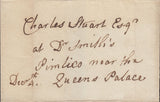 Charles Stuart Esqr
at Dr Smith's
Pimlico near the
Decr 4. Queens Palace